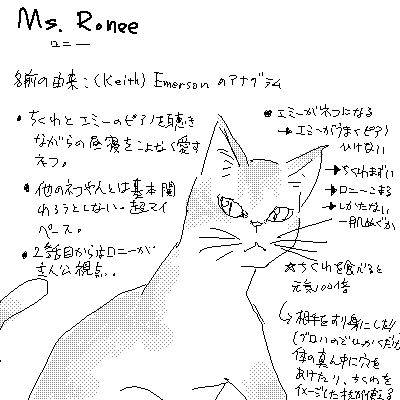 Ms. Ronee
ロニー
名前の由来:(Keith) Emerson のアナグラム
• ちくわとエミーのピアノを聴き
ながらの昼寝をこよなく愛す
ネコ。
• 他のネコやんとは基本関
わろうとしない。超マイ
ペース。
• 2話目からはロニーが
主人公視点..
• エミーがネコになる
→ エミーがうまくピアノ
ひけない
→ ちくわまずい
→ ロニーこまる
→ しかたない
一肌ぬぐか
☆ちくわを食べると
元気100倍
相手を
(グロいので
体の真ん中に穴を
あけたり、ちくわを
イメージした技が使える